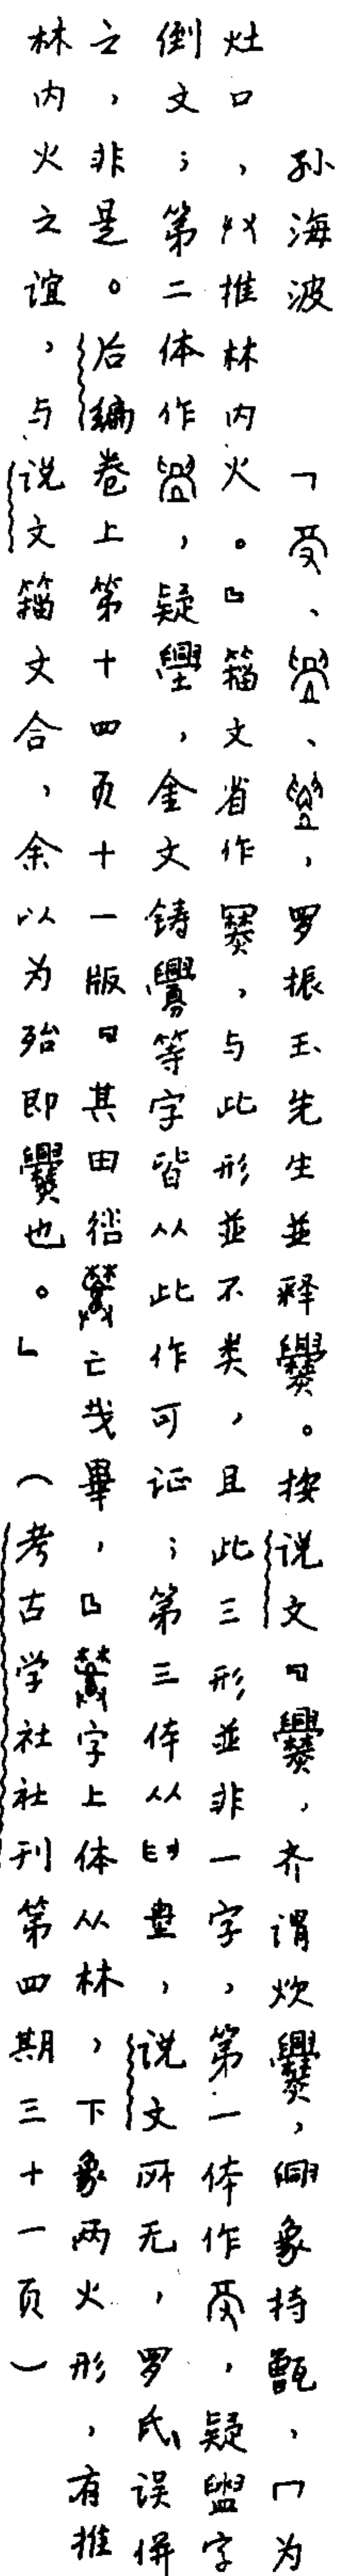 孙海波 「、、，罗振玉先生並释爨。按说文『爨，齐谓炊爨，象持甑，冂为
灶口，廾推林内火。』籀文省作，与此形並不类，且此三形並非一字，第一体作，疑盥字
倒文；第二体作，疑，金文铸等字皆从此作可证；第三体从𦥑，说文所无，罗氏误併
之，非是。后编卷上第十四页十一版『其田亡𢦏，』字上体从林，下象两火形，有推
林内火之谊，与说文籀文合，余以为殆即爨也。」（考古学社社刊第四期三十一页）